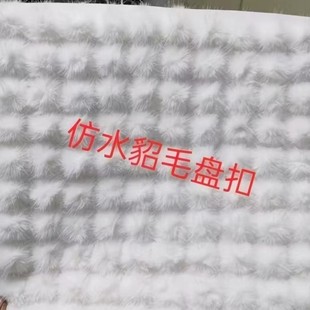 仿水貂毛盘扣